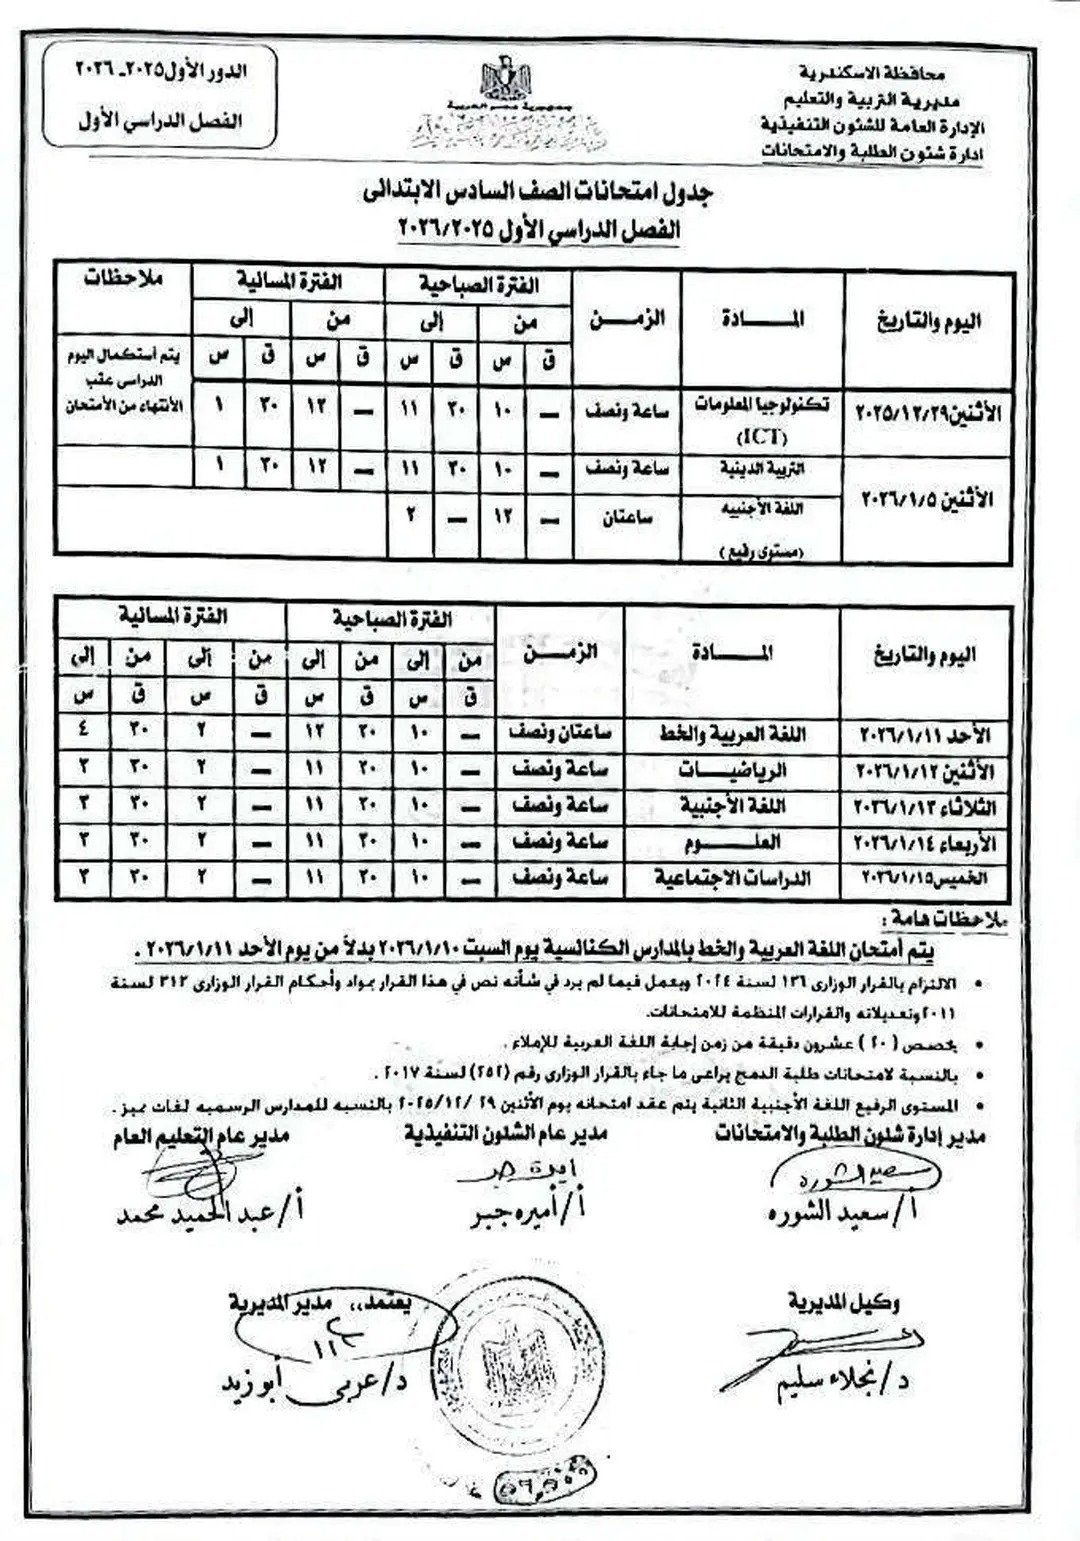 محافظة الاسكندرية
مديرية التربية والتعليم
الإدارة العامة للشئون التنفيذية
ادارة شئون الطلبة والامتحانات
جمهورية مصر العربية
الدور الأول ٢٠٢٥ـ ٢٠٢٦
الفصل الدراسي الأول
جدول امتحانات الصف السادس الابتدائى
الفصل الدراسي الأول ٢٠٢٦/٢٠٢٥
اليوم والتاريخ المـــــادة الزمـــن الفترة الصباحية الفترة المسائية ملاحظات
من إلى من إلى
ق س ق س ق س ق س
يتم أستكمال اليوم
الدراسى عقب
الأنتهاء من الأمتحان
الأثنين ٢٠٢٥/١٢/٢٩ تكنولوجيا المعلومات (ICT) ساعة ونصف — ١٠ ٣٠ ١١ — ١٢ ٣٠ ١
الأثنين ٢٠٢٦/١/٥ التربية الدينية ساعة ونصف — ١٠ ٣٠ ١١ — ١٢ ٣٠ ١
اللغة الأجنبيه (مستوى رفيع) ساعتان — ١٢ — ٢
اليوم والتاريخ المـــــادة الزمـــن الفترة الصباحية الفترة المسائية
من إلى من إلى من إلى من إلى
ق س ق س ق س ق س
الأحد ٢٠٢٦/١/١١ اللغة العربية والخط ساعتان ونصف — ١٠ ٣٠ ١٢ — ٢ ٣٠ ٤
الأثنين ٢٠٢٦/١/١٢ الرياضيـــات ساعة ونصف — ١٠ ٣٠ ١١ — ٢ ٣٠ ٣
الثلاثاء ٢٠٢٦/١/١٣ اللغة الأجنبية ساعة ونصف — ١٠ ٣٠ ١١ — ٢ ٣٠ ٣
الأربعاء ٢٠٢٦/١/١٤ العلـــوم ساعة ونصف — ١٠ ٣٠ ١١ — ٢ ٣٠ ٣
الخميس ٢٠٢٦/١/١٥ الدراسات الاجتماعية ساعة ونصف — ١٠ ٣٠ ١١ — ٢ ٣٠ ٣
ملاحظات هامة :
يتم أمتحان اللغة العربية والخط بالمدارس الكنائسية يوم السبت ٢٠٢٦/١/١٠ بدلاً من يوم الأحد ٢٠٢٦/١/١١ .
• الالتزام بالقرار الوزارى ١٣٦ لسنة ٢٠٢٤ ويعمل فيما لم يرد في شأنه نص في هذا القرار بمواد وأحكام القرار الوزارى ٣١٣ لسنة
٢٠١١ وتعديلاته والقرارات المنظمة للامتحانات.
• يخصص (٢٠) عشرون دقيقة من زمن إجابة اللغة العربية للإملاء .
• بالنسبة لامتحانات طلبة الدمج يراعى ما جاء بالقرار الوزارى رقم (٢٥٢) لسنة ٢٠١٧ .
• المستوى الرفيع اللغة الأجنبية الثانية يتم عقد امتحانه يوم الأثنين ٢٩ /٢٠٢٥/١٢ بالنسبه للمدارس الرسميه لغات مميز .
مدير إدارة شئون الطلبة والامتحانات مدير عام الشئون التنفيذية مدير عام التعليم العام
سعيد الشوره أميرة جبر
أ/ سعيد الشوره أ/ أميره جبر أ/ عبد الحميد محمد
وكيل المديرية يعتمد،، مدير المديرية
د/ نجلاء سليم د/ عربى أبو زيد